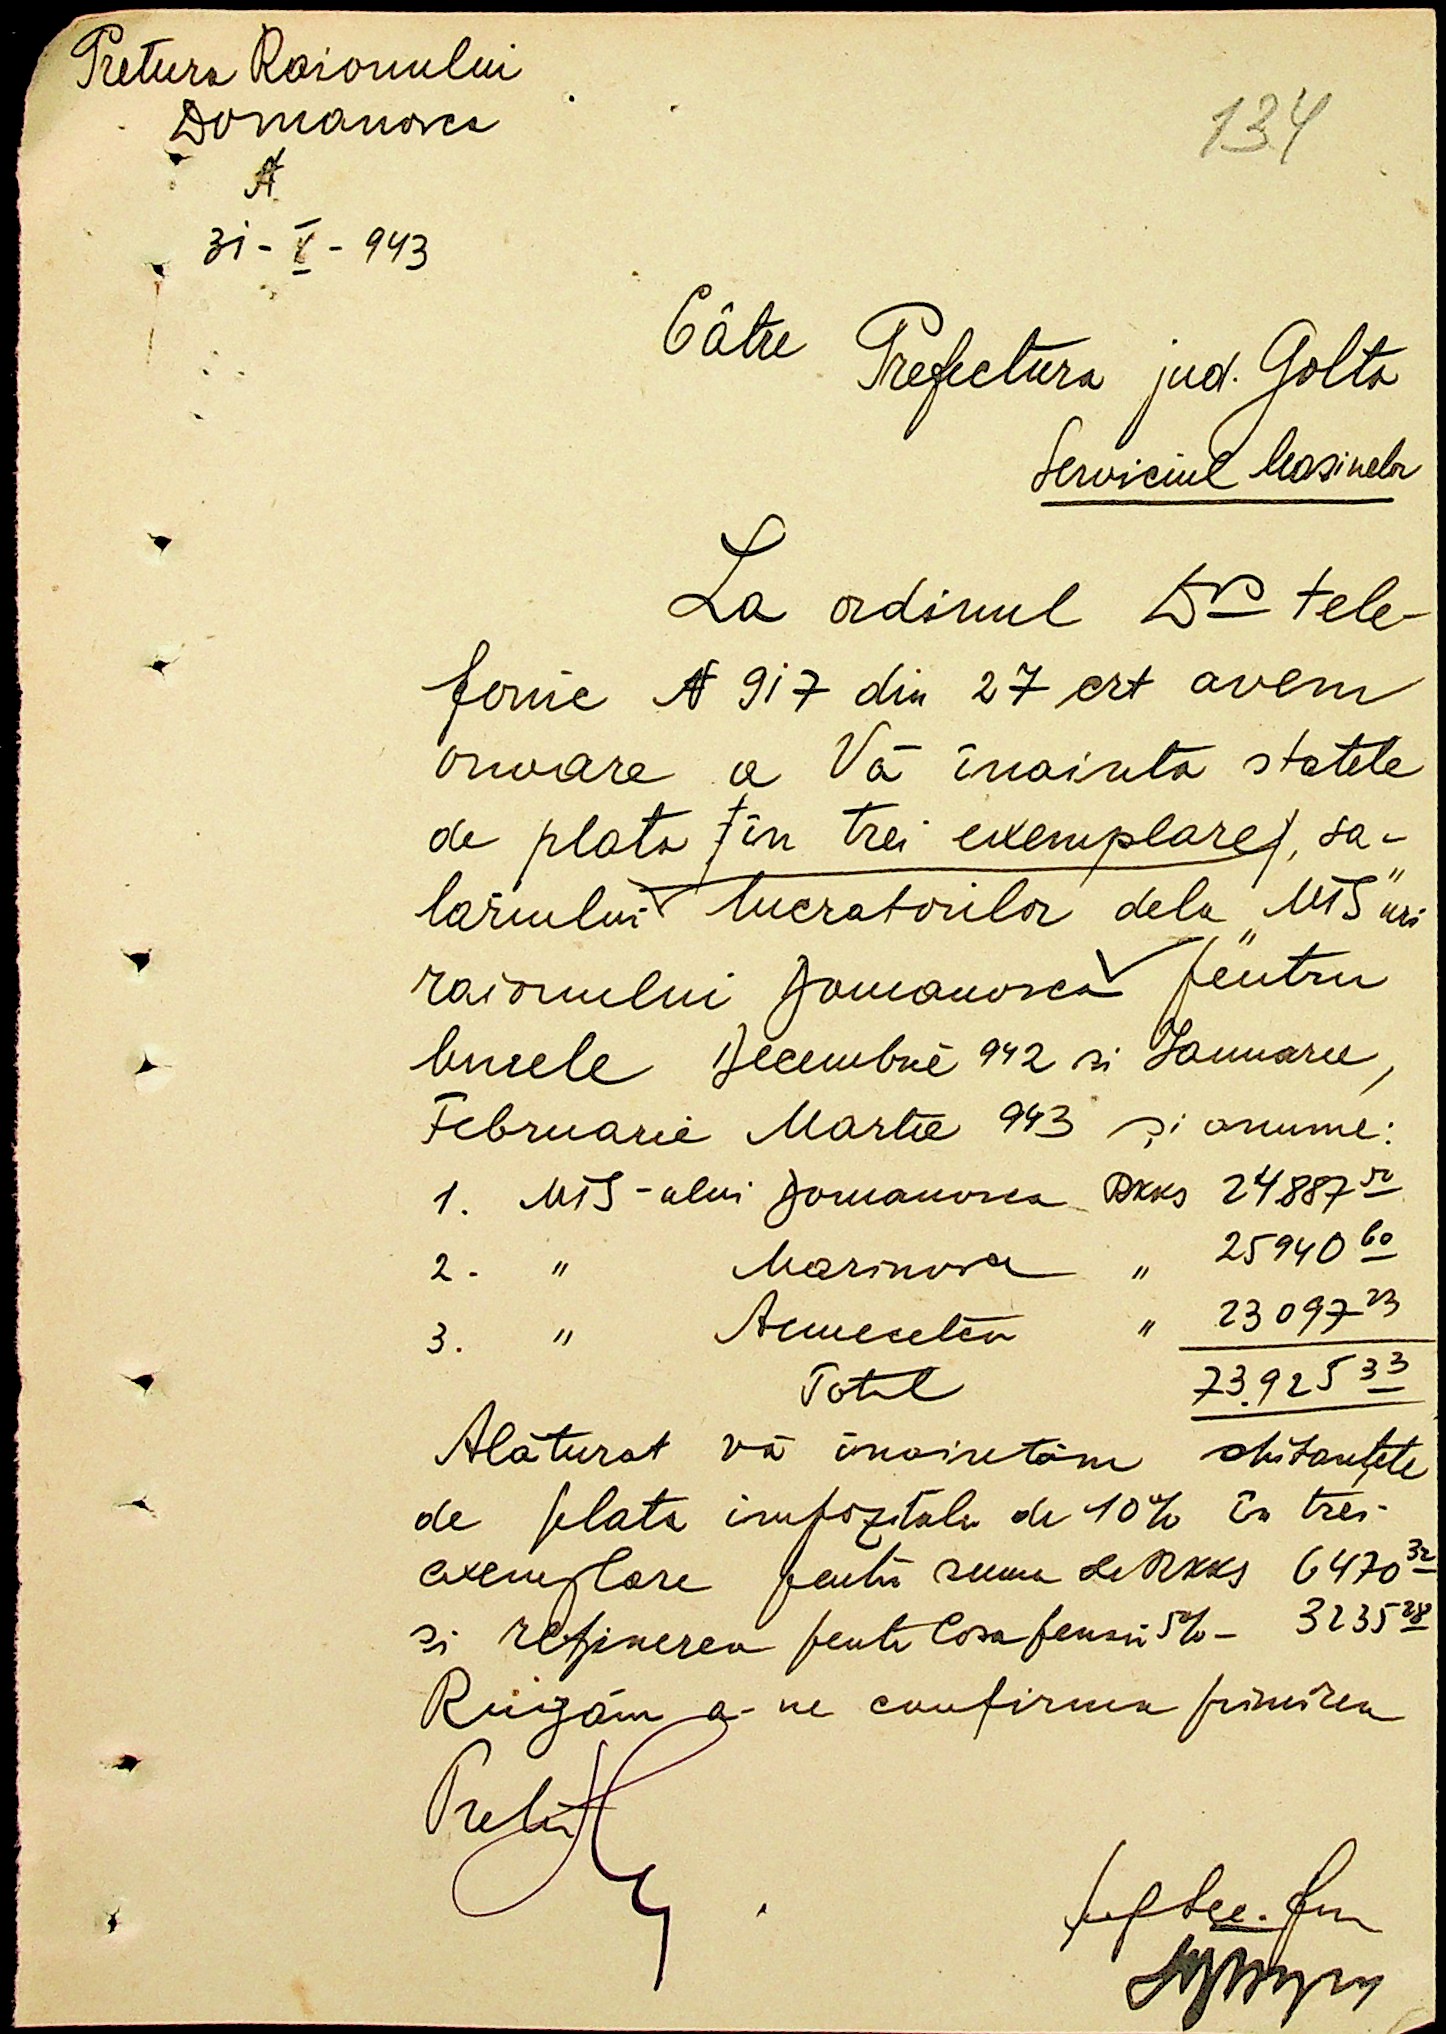 Pretura Raionului
Domanovca
N
31-V-943
134
Către Prefectura jud. Golta
Serviciul Masinelor
La ordinul Dv tele-
fonic N 917 din 27 crt avem
onoare a Vă înainta statele
de plata (in trei exemplare), sa-
lariului lucratorilor dela "MTS" uri
raionului Domanovca pentru
lunele Decembrie 942 si Ianuarie,
Februarie Martie 943 și anume:
1. MTS-ului Domanovca RKKS 24887 50
2. " Marinovca " 25940 60
3. " Acmecetca " 23097 23
Total 73.925 33
Alăturat vă înaintăm chitanțele
de plata impozitului de 10% în trei
exemplare pentru suma de RKKS 6470 32
si reținerea pentru Casa pensii 5% - 3235 28
Rugăm a-ne confirma primirea
Pretor
Șef Sec. fin